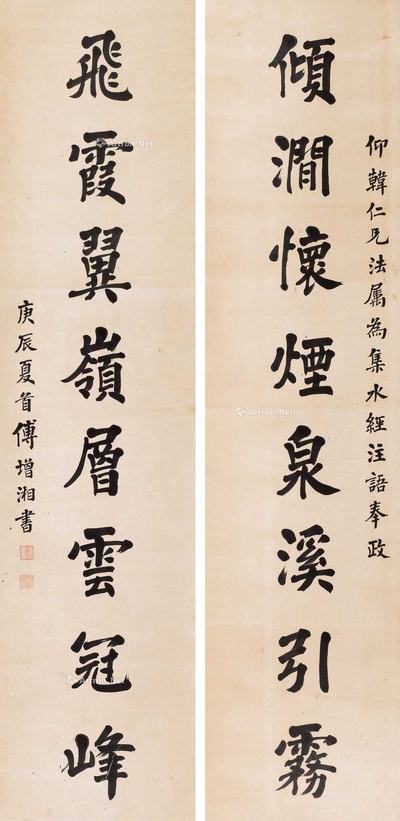 仰韓仁兄法属為集水經注語奉政
傾澗懷煙泉溪引霧
飛霞翼嶺層雲冠峰
庚辰夏首傅增湘書
Artron.Net
Artron.Net
Artron.Net
Artron.Net